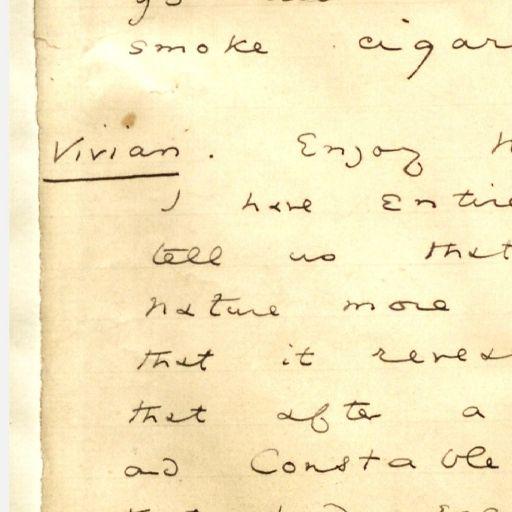 smoke cigar
Vivian. Enjoy
I have entire
tell us that
nature more
that it revea
that after a
and Constable